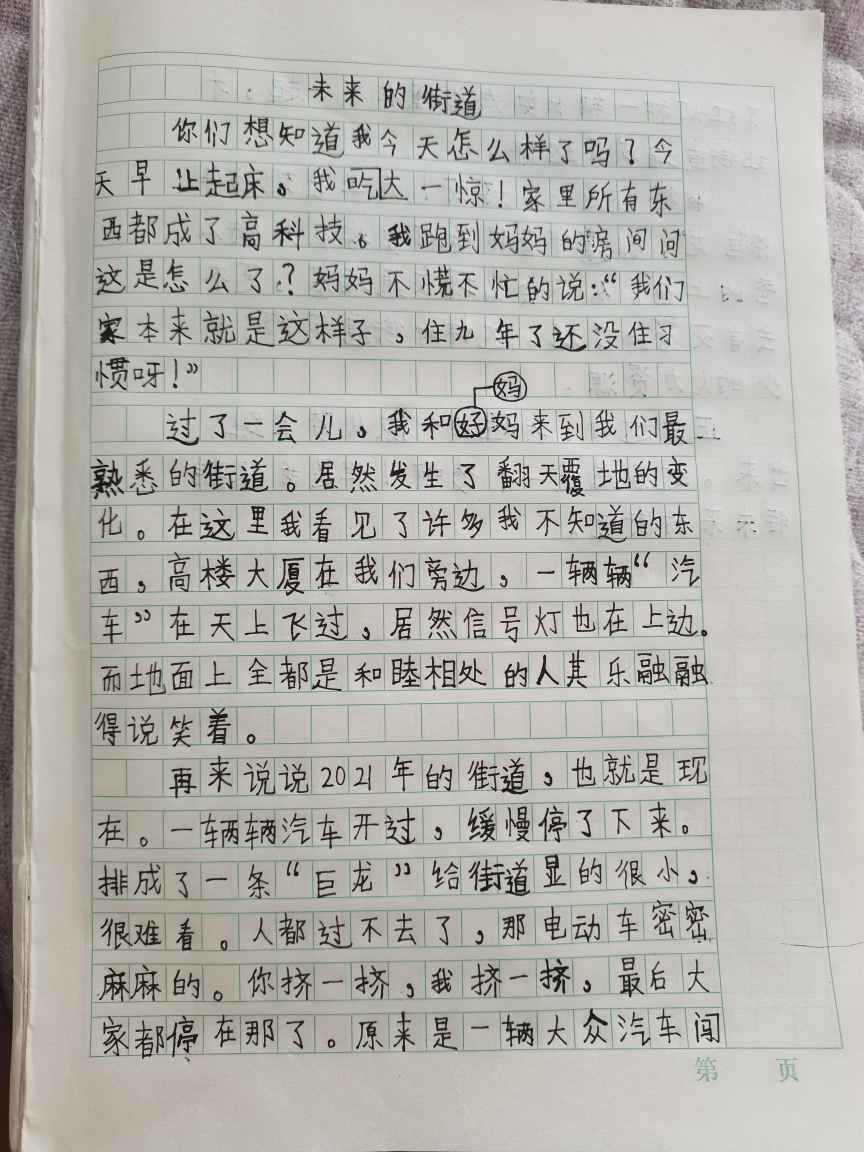 未来的街道
你们想知道我今天怎么样了吗？今
天早上起床。我吃大一惊！家里所有东
西都成了高科技。我跑到妈妈的房间问
这是怎么了？妈妈不慌不忙的说：“我们
家本来就是这样子，住九年了还没住习
惯呀！”
妈
过了一会儿，我和好妈来到我们最
熟悉的街道。居然发生了翻天覆地的变
化。在这里我看见了许多我不知道的东
西，高楼大厦在我们旁边，一辆辆“汽
车”在天上飞过，居然信号灯也在上边。
而地面上全都是和睦相处的人其乐融融
得说笑着。
再来说说2021年的街道，也就是现
在。一辆辆汽车开过，缓慢停了下来。
排成了一条“巨龙”给街道显的很小，
很难看。人都过不去了，那电动车密密
麻麻的。你挤一挤，我挤一挤，最后大
家都停在那了。原来是一辆大众汽车闯
第 页